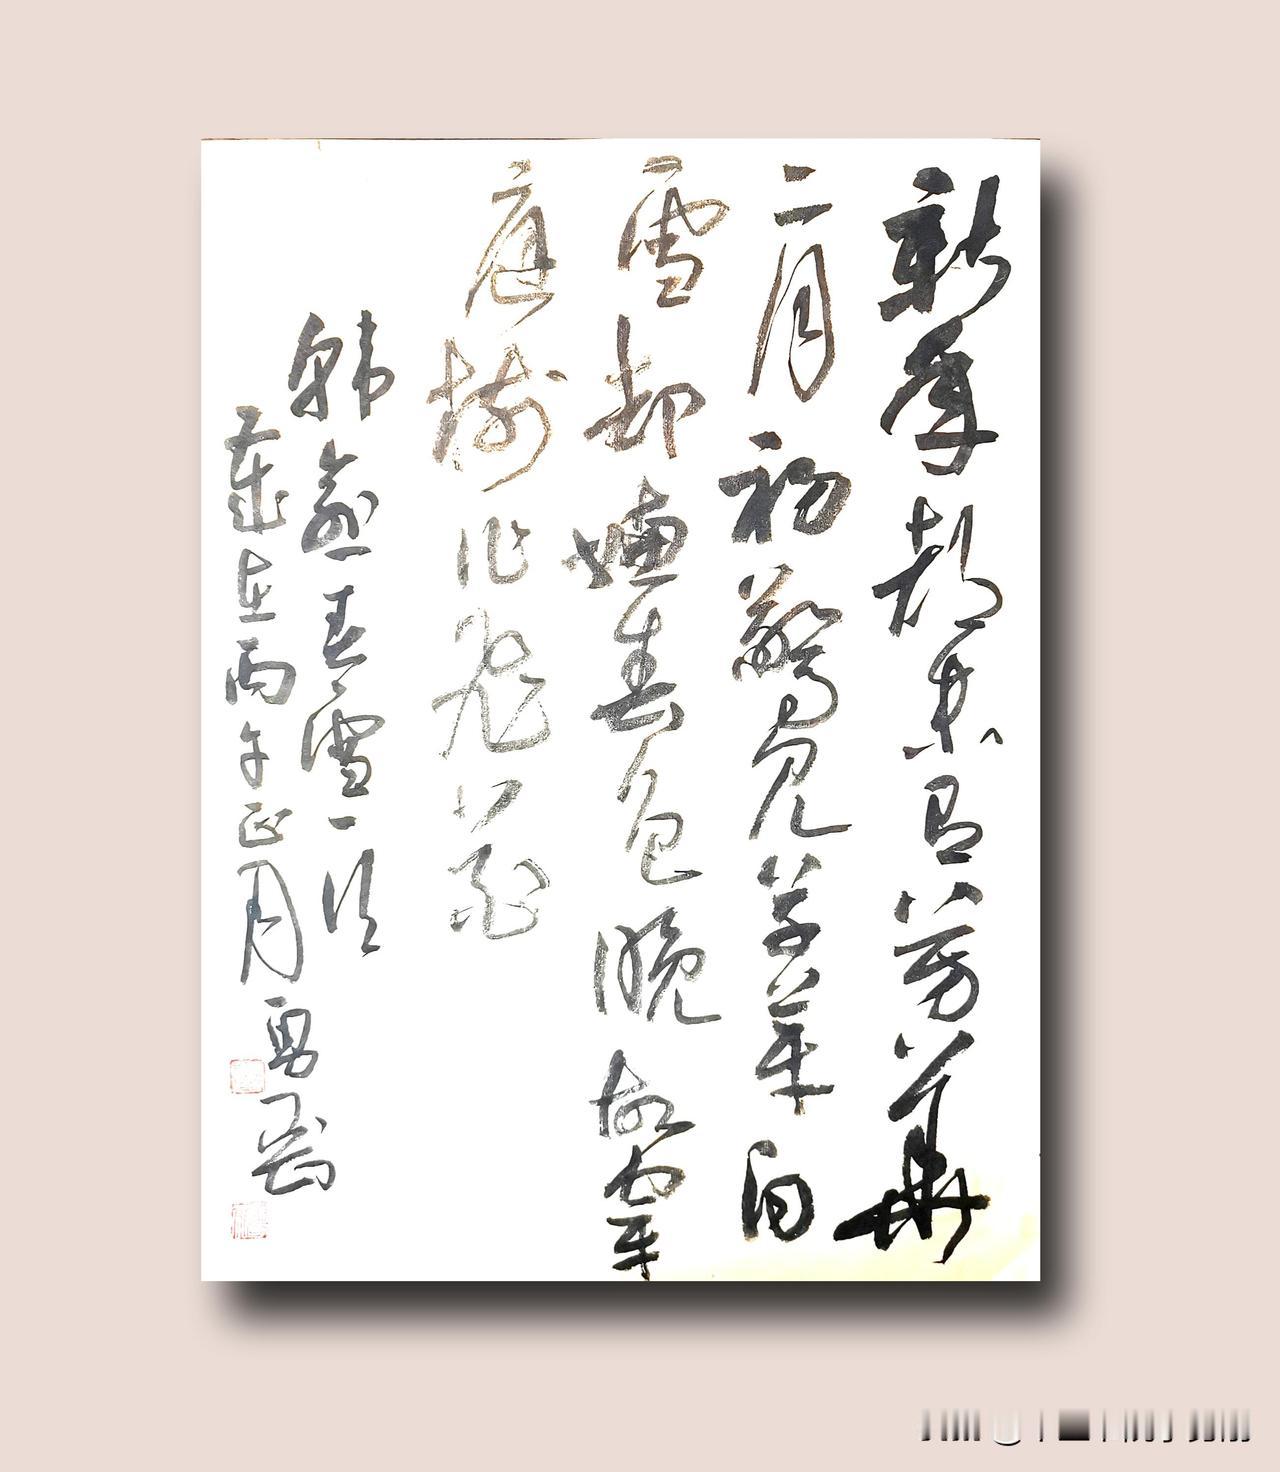 新年都未有芳華
二月初驚見草芽白
雪却嫌春色晚故穿
庭樹作飛花
韓愈春雪一首
歲在丙午正月